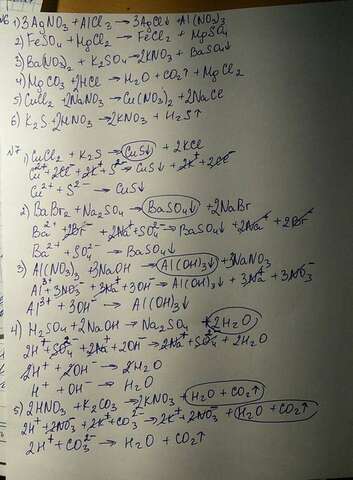 №6 1) 3AgNO₃ + AlCl₃ → 3AgCl↓ + Al(NO₃)₃
2) FeSO₄ + MgCl₂ → FeCl₂ + MgSO₄
3) Ba(NO₃)₂ + K₂SO₄ → 2KNO₃ + BaSO₄↓
4) MgCO₃ + 2HCl → H₂O + CO₂↑ + MgCl₂
5) CuCl₂ + 2NaNO₃ → Cu(NO₃)₂ + 2NaCl
6) K₂S + 2HNO₃ → 2KNO₃ + H₂S↑
№7
1) CuCl₂ + K₂S → CuS↓ + 2KCl
Cu²⁺ + 2Cl⁻ + 2K⁺ + S²⁻ → CuS↓ + 2K⁺ + 2Cl⁻
Cu²⁺ + S²⁻ → CuS↓
2) BaBr₂ + Na₂SO₄ → BaSO₄↓ + 2NaBr
Ba²⁺ + 2Br⁻ + 2Na⁺ + SO₄²⁻ → BaSO₄↓ + 2Na⁺ + 2Br⁻
Ba²⁺ + SO₄²⁻ → BaSO₄↓
3) Al(NO₃)₃ + 3NaOH → Al(OH)₃↓ + 3NaNO₃
Al³⁺ + 3NO₃⁻ + 3Na⁺ + 3OH⁻ → Al(OH)₃↓ + 3Na⁺ + 3NO₃⁻
Al³⁺ + 3OH⁻ → Al(OH)₃↓
4) H₂SO₄ + 2NaOH → Na₂SO₄ + 2H₂O
2H⁺ + SO₄²⁻ + 2Na⁺ + 2OH⁻ → 2Na⁺ + SO₄²⁻ + 2H₂O
2H⁺ + 2OH⁻ → 2H₂O
H⁺ + OH⁻ → H₂O
5) 2HNO₃ + K₂CO₃ → 2KNO₃ + H₂O + CO₂↑
2H⁺ + 2NO₃⁻ + 2K⁺ + CO₃²⁻ → 2K⁺ + 2NO₃⁻ + H₂O + CO₂↑
2H⁺ + CO₃²⁻ → H₂O + CO₂↑